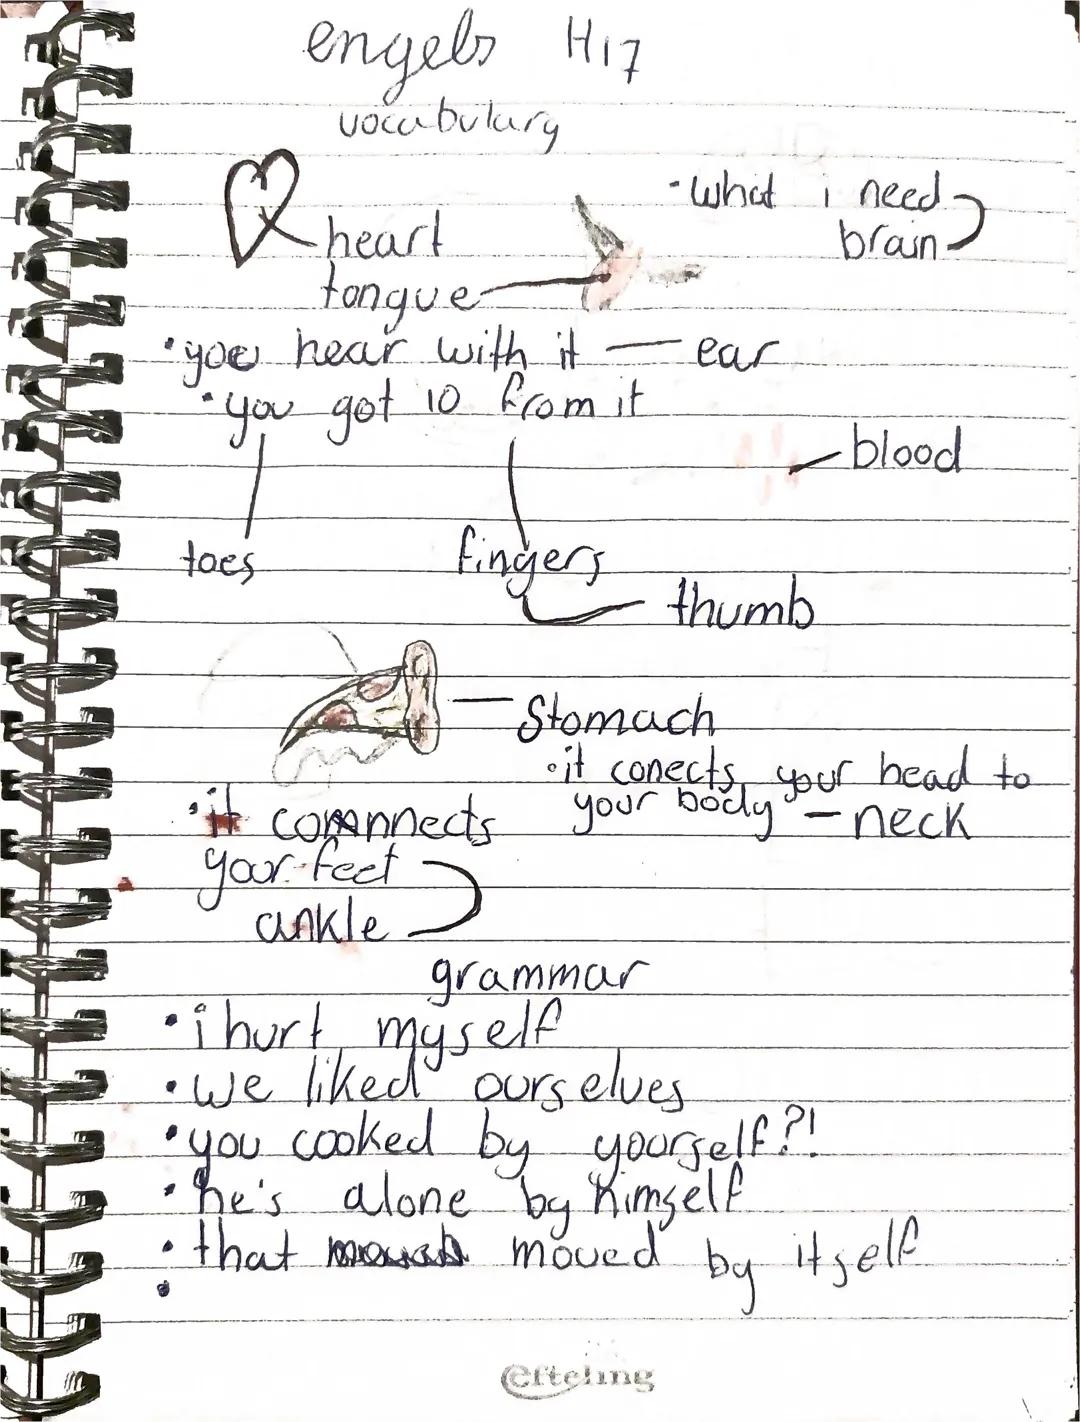 engels H17
vocabulary
heart
·what i need
brain
tongue
·you hear with it — ear
·you got 10 from it
blood
toes fingers
thumb
Stomach
·it conects your head to
your body — neck
·it connects
your feet
ankle
grammar
·i hurt myself
·we liked ourselves
·you cooked by yourself?!
·he's alone by himself
·that moved by itself
·
efteling